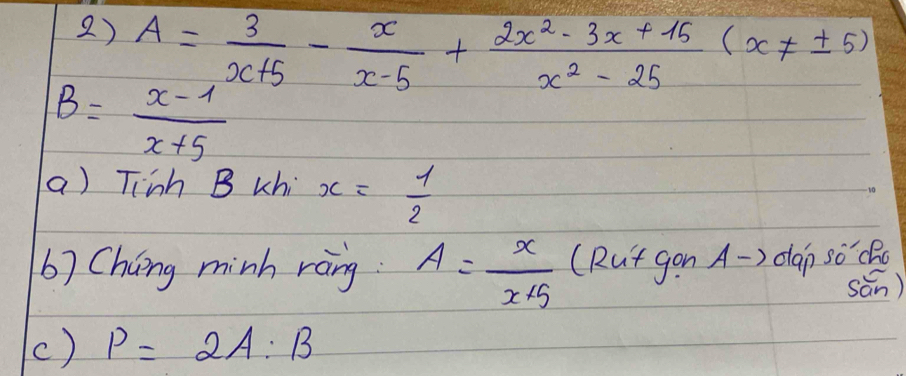 2) A = 3/(x+5) - x/(x-5) + (2x² - 3x + 15)/(x² - 25) (x ≠ ± 5)
B = (x-1)/(x+5)
a) Tính B khi x = 1/2
b) Chứng minh rằng: A = x/(x+5) (Rút gọn A -> đáp số cho sẵn)
c) P = 2A : B